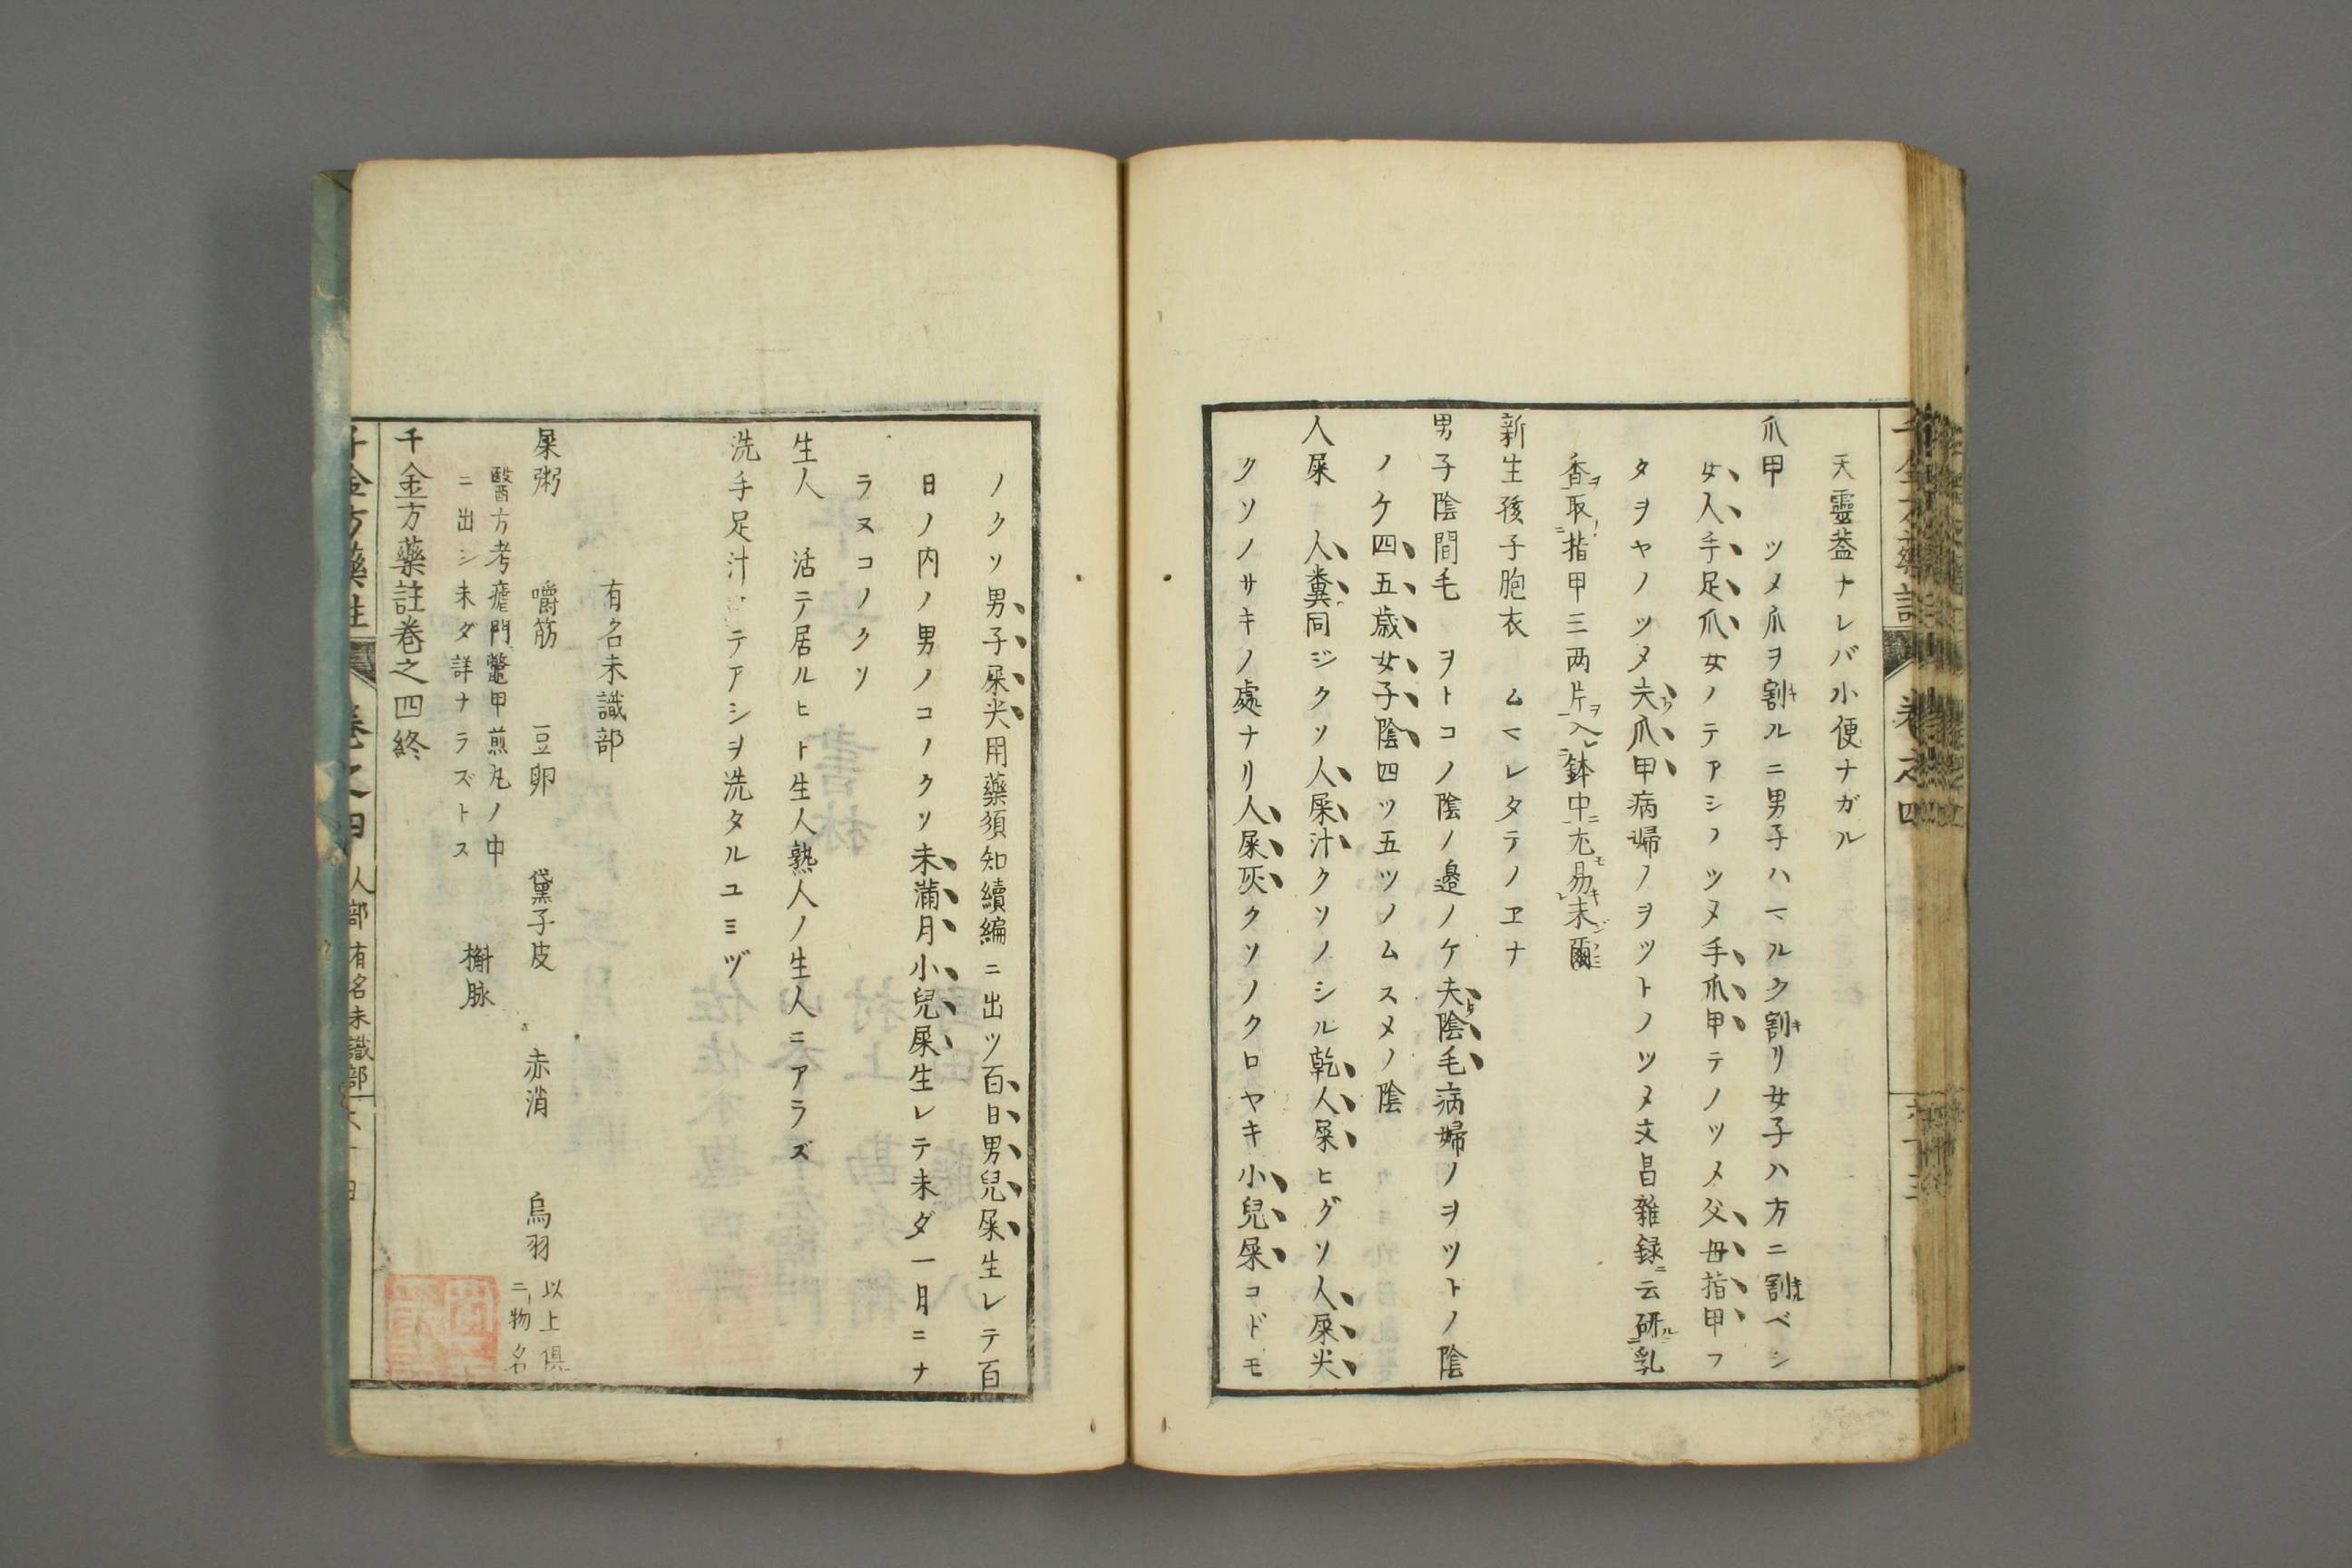 天靈葢ナレバ小便ナガル
爪甲　ツメ爪ヲ割ルニ男子ハマルク割リ女子ハ方ニ割ベシ
女人手足爪女ノテアシノツメ手爪甲テノツメ父母指甲フ
タヲヤノツメ夫爪甲病婦ノヲツトノツメ文昌雜録ニ云研乳
香ヲ取指甲三两片ヲ入鉢中ニ尤モ易末
新生孩子胞衣　ムマレタテノヱナ
男子陰間毛　ヲトコノ陰ノ邉ノケ夫陰毛病婦ノヲツトノ陰
ノケ四五歳女子陰四ツ五ツノムスメノ陰
人屎　人糞同ジクソ人屎汁クソノシル乾人屎ヒグソ人屎尖
クソノサキノ處ナリ人屎灰クソノクロヤキ小兒屎コドモ
ノクソ男子屎尖用藥須知續編ニ出ツ百日男兒屎生レテ百
日ノ内ノ男ノコノクソ未滿月小兒屎生レテ未ダ一月ニナ
ラヌコノクソ
生人　活テ居ルヒト生人熟人ノ生人ニアラズ
洗手足汁　テアシヲ洗タルユミヅ
有名未識部
屎粥　嚼筋　豆卵　黛子皮　赤消　烏羽　以上倶
ニ物名
醫方考瘧門鼈甲煎丸ノ中
ニ出シ未ダ詳ナラズトス
槲脉
千金方藥註巻之四終
千金方藥註　巻之四　人部　有名未識部